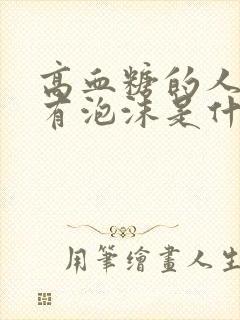 高血糖的人
有泡沫是什
用筆繪畫人生